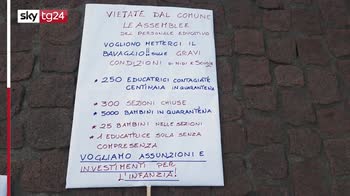 sky tg24
VIETATE DAL COMUNE
LE ASSEMBLEE
DEL PERSONALE EDUCATIVO
VOGLIONO METTERCI IL
BAVAGLIO!! SULLE GRAVI
CONDIZIONI DI NIDI E SCUOLE
* 250 EDUCATRICI CONTAGIATE
CENTINAIA IN QUARANTENA
* 300 SEZIONI CHIUSE
* 5000 BAMBINI IN QUARANTENA
* 25 BAMBINI NELLE SEZIONI
* 1 EDUCATRICE SOLA SENZA
COMPRESENZA
VOGLIAMO ASSUNZIONI E
INVESTIMENTI PER
L'INFANZIA!